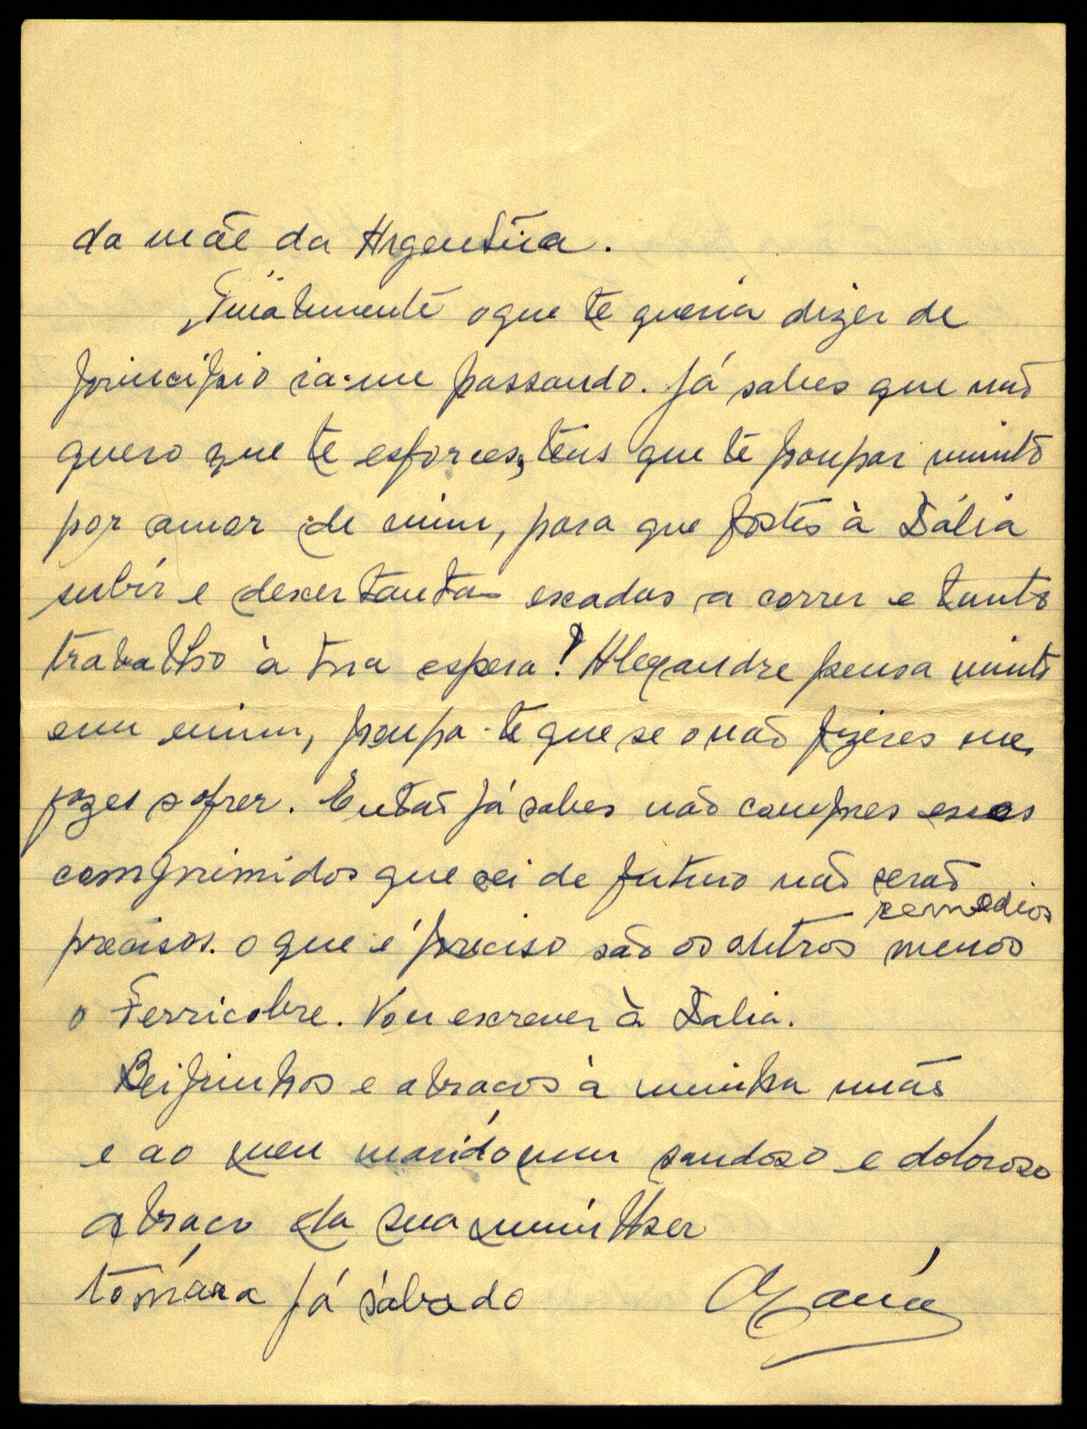 da mãe da Argentina.
Finalmente o que te queria dizer de
principio ia-me passando. Já sabes que não
quero que te esforces, tens que te poupar muinto
por amor de mim, para que fostes à Dália
subir e descer tantas escadas a correr e tanto
trabalho à tua espera! Alexandre pensa muinto
em mim, poupa-te que se o não fizeres me
fazes sofrer. Então já sabes não compres esses
comprimidos que sei de futuro não serão
remedios
precisos. o que é preciso são os outros menos
o Ferricobre. Vou escrever à Dalia.
Beijinhos e abraços à minha mãe
e ao meu marido um saudoso e doloroso
abraço da sua mulher
tomára já sábado